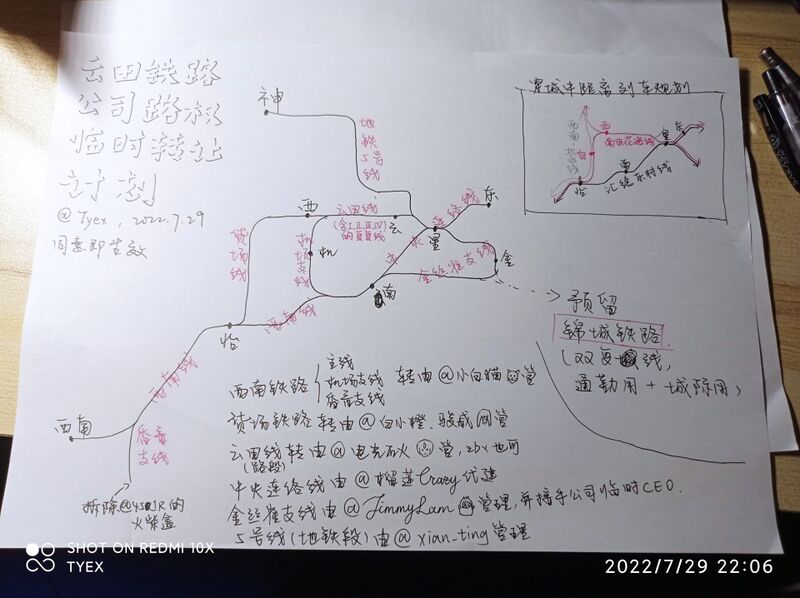 云田铁路
公司路权
临时转让
计划
@Tyex, 2022.7.29
同意即生效
神
地铁5号线
西
云田线
(含I.II.III.IV)
的复复线
云
机
机场支线
货场线
连络线
东
星
中央
金丝雀支线
金
南
西南线
怡
西南线
西南
番斋支线
拆除@45012R的
火柴盒
星城中距离列车规划
西
南田花海线
星
东
西南地台线
台
西
汇綘东村线
怡
预留
锦城铁路
(双复线,
通勤用+城际用)
西南铁路
主线
机场支线
番斋支线
转由@小白猫管
货场铁路 转由@白小橙、骏威网管
云田线转由@电光石火管, zbx也可
(路段)
中央连络线由@榴莲Crazy代建
金丝雀支线由@JimmyLam管理,并接手公司临时CEO.
5号线(地铁段)由@xian-ting管理
SHOT ON REDMI 10X
TYEX
2022/7/29 22:06